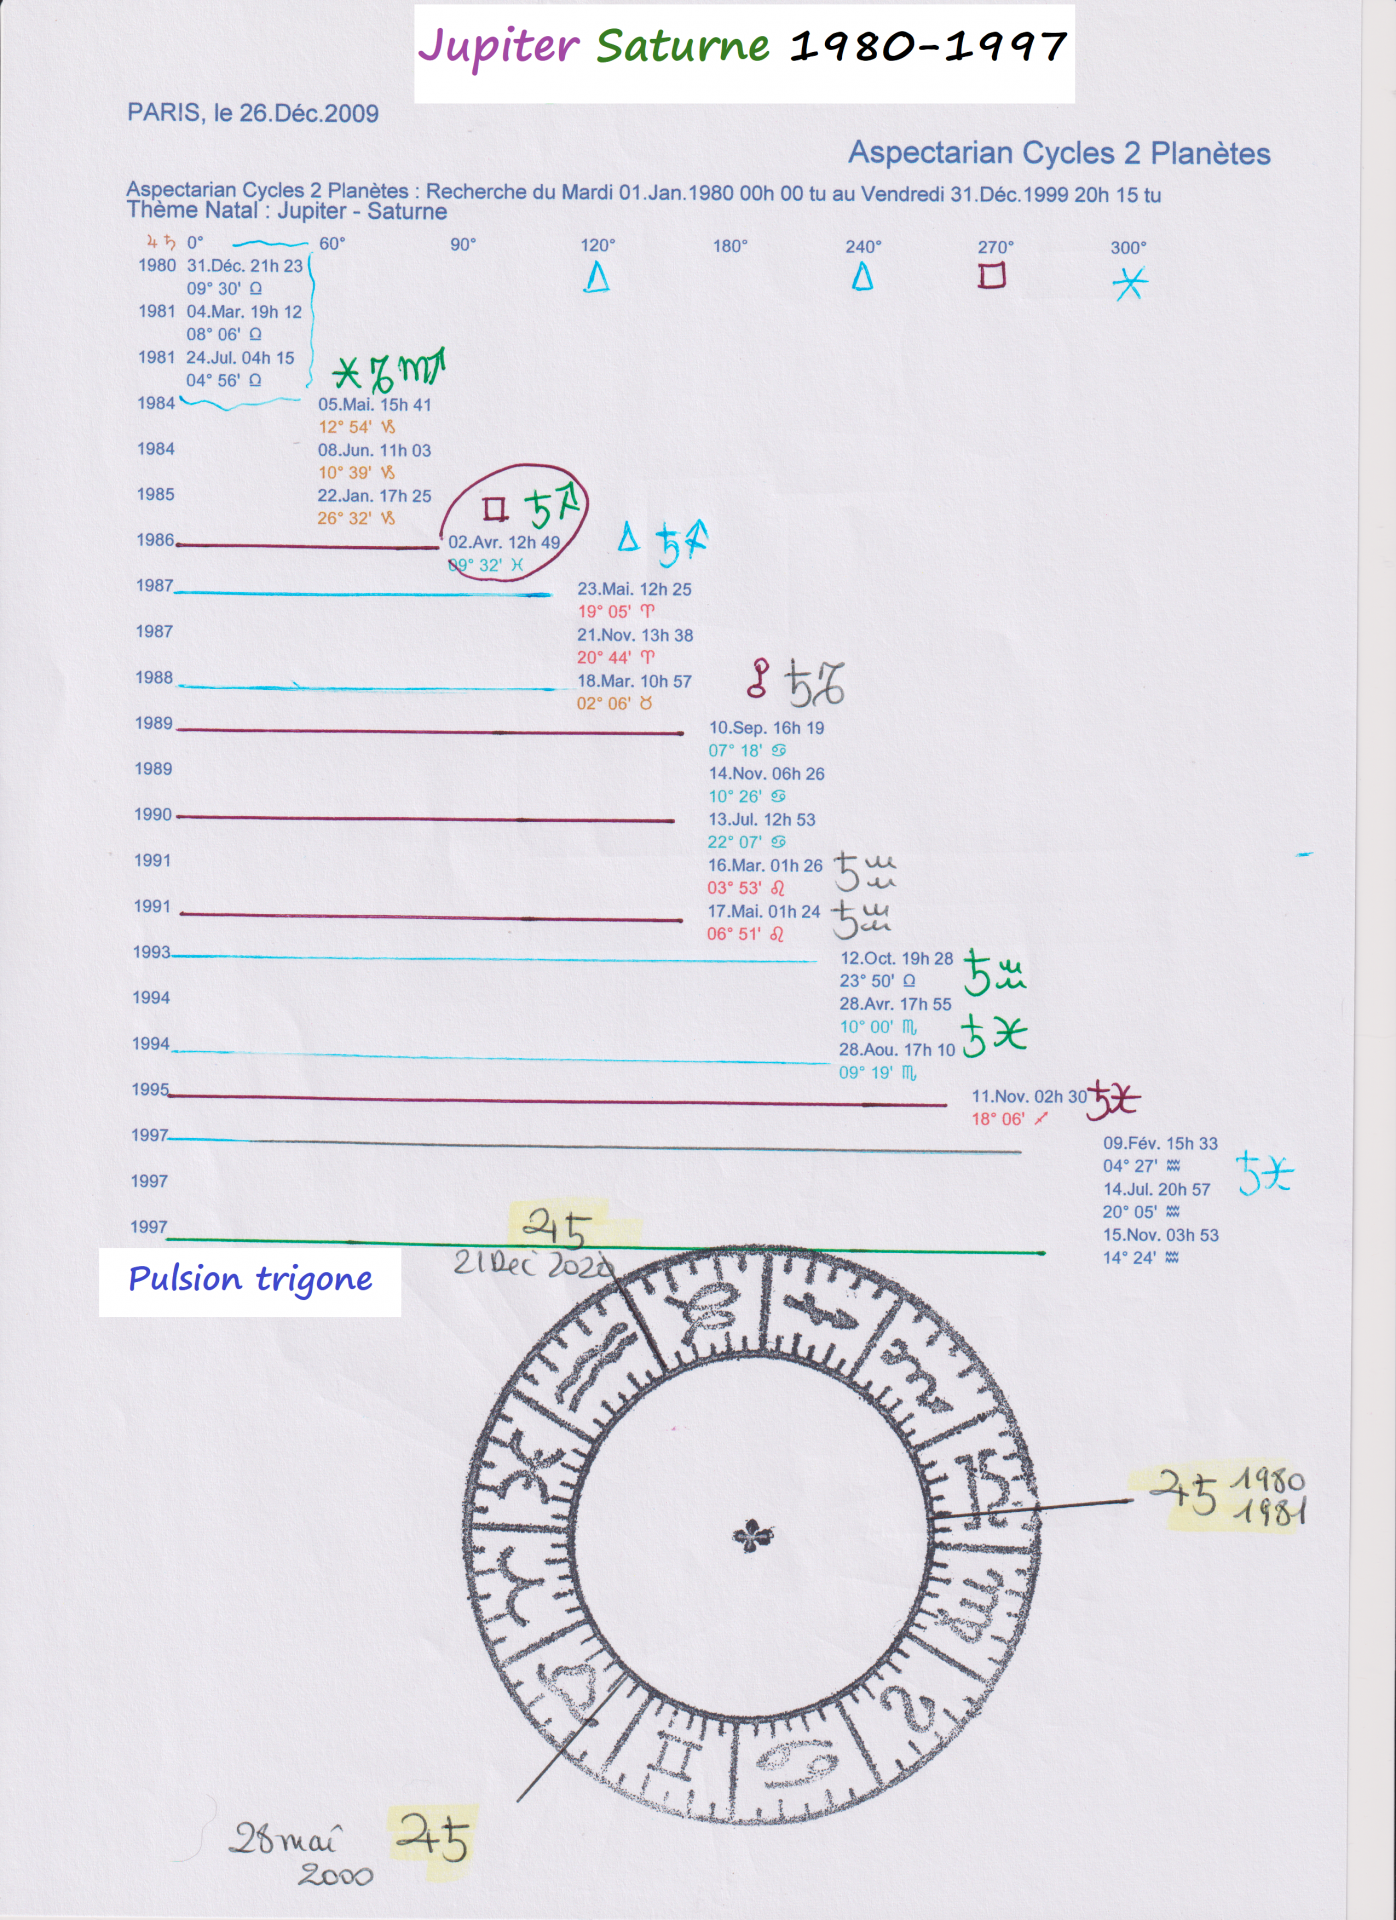 Jupiter Saturne 1980-1997
PARIS, le 26.Déc.2009
Aspectarian Cycles 2 Planètes
Aspectarian Cycles 2 Planètes : Recherche du Mardi 01.Jan.1980 00h 00 tu au Vendredi 31.Déc.1999 20h 15 tu
Thème Natal : Jupiter - Saturne
♃ ♄ 0° 60° 90° 120° 180° 240° 270° 300°
1980 31.Déc. 21h 23
09° 30' ♎
1981 04.Mar. 19h 12
08° 06' ♎
1981 24.Jul. 04h 15
04° 56' ♎
1984 05.Mai. 15h 41
12° 54' ♑
1984 08.Jun. 11h 03
10° 39' ♑
1985 22.Jan. 17h 25
26° 32' ♑
□ ♄ ♐
1986 02.Avr. 12h 49
09° 32' ♓
△ ♄ ♐
1987 23.Mai. 12h 25
19° 05' ♈
1987 21.Nov. 13h 38
20° 44' ♈
1988 18.Mar. 10h 57
02° 06' ♉
☍ ♄ ♑
1989 10.Sep. 16h 19
07° 18' ♋
1989 14.Nov. 06h 26
10° 26' ♋
1990 13.Jul. 12h 53
22° 07' ♋
1991 16.Mar. 01h 26 ♄ ♒
03° 53' ♌
1991 17.Mai. 01h 24 ♄ ♒
06° 51' ♌
1993 12.Oct. 19h 28 ♄ ♒
23° 50' ♎
1994 28.Avr. 17h 55
10° 00' ♏ ♄ ♓
1994 28.Aou. 17h 10
09° 19' ♏
1995 11.Nov. 02h 30 ♄ ♓
18° 06' ♐
1997 09.Fév. 15h 33
04° 27' ♒ ♄ ♓
1997 14.Jul. 20h 57
20° 05' ♒
1997 15.Nov. 03h 53
14° 24' ♒
♃ ♄
21 Déc 2020
Pulsion trigone
♃ ♄ 1980
1981
28 mai ♃ ♄
2000